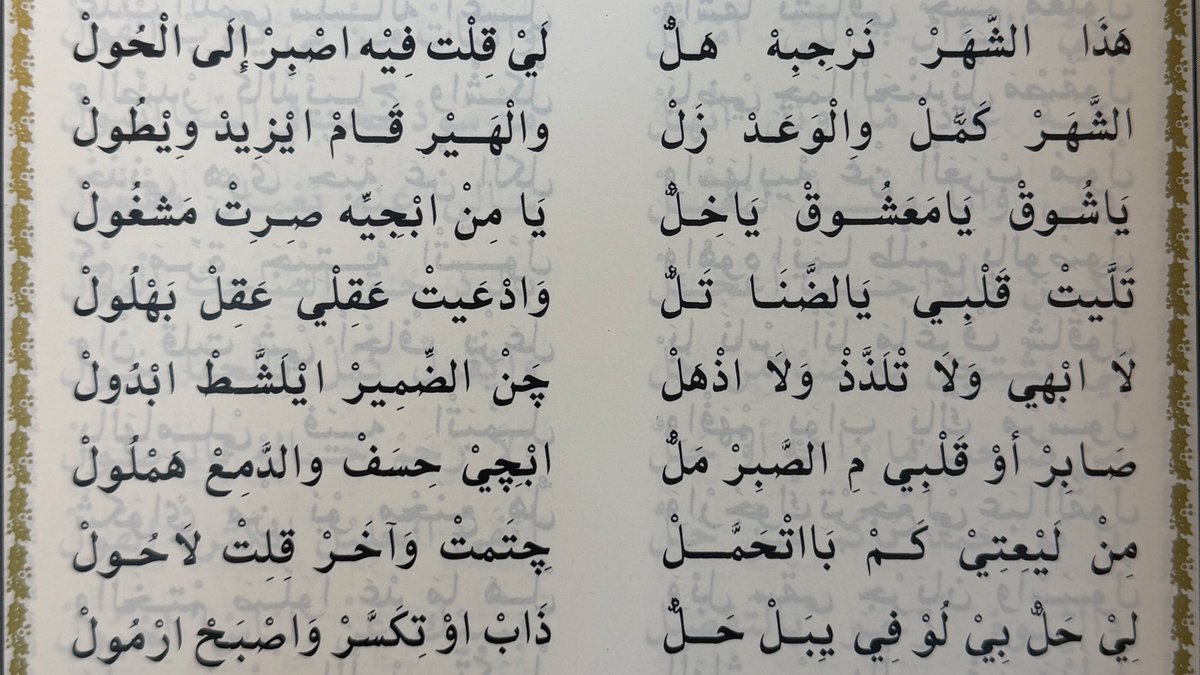 هَذَا الشَّهَرْ نَرْجِبِهْ هَـلٌّ لَيْ قِلْت فِيْه اصْبِرْ إِلَى الْحُولْ
الشَّهَرْ كَمَّـلْ وِالْوَعَـدْ زَلْ والْهَـيْـر قَـامْ ايْزِيدْ وِيْطُولْ
يَاشُـوقْ يَامَعَشُـوقْ يَاخِـلٌّ يَا مِنْ ابْحِبِّه صِـرِتْ مَشغُولْ
تَلَّيتْ قَلْبِـي يَالضَّنَـا تَـلٌّ وَادْعَيتْ عَقِلْي عَقِلْ بَهْلُولْ
لَا ابْهي وَلَا تْلَذَّذْ وَلَا اذْهَلْ چَنْ الضِّمِيرْ ايْلَشَّـطْ ابْدُولْ
صَابِرْ أوْ قَلْبِي مِ الصَّبِرْ مَلٌّ ابْچِيْ حِسَفْ والدَّمِعْ هَمْلُولْ
مِنْ لَيْعِتِيْ كَـمْ بَااتْحَمَّـلْ چِتَمتْ وَآخَرْ قِلِتْ لَاحُولْ
لِيْ حَلٌّ بِيْ لُوْ فِي يِبَلْ حَـلٌّ ذَابْ اوْ تِكَسَّرْ وَاصْبَحْ ارْمُولْ